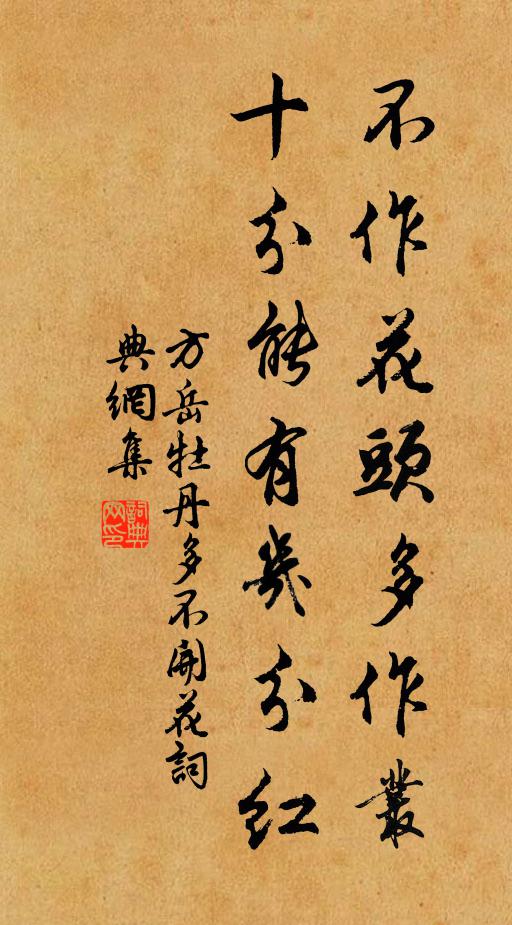 不作花頭多作叢
十分能有幾分紅
方岳牡丹多不開花詞
典網集
詞典網印